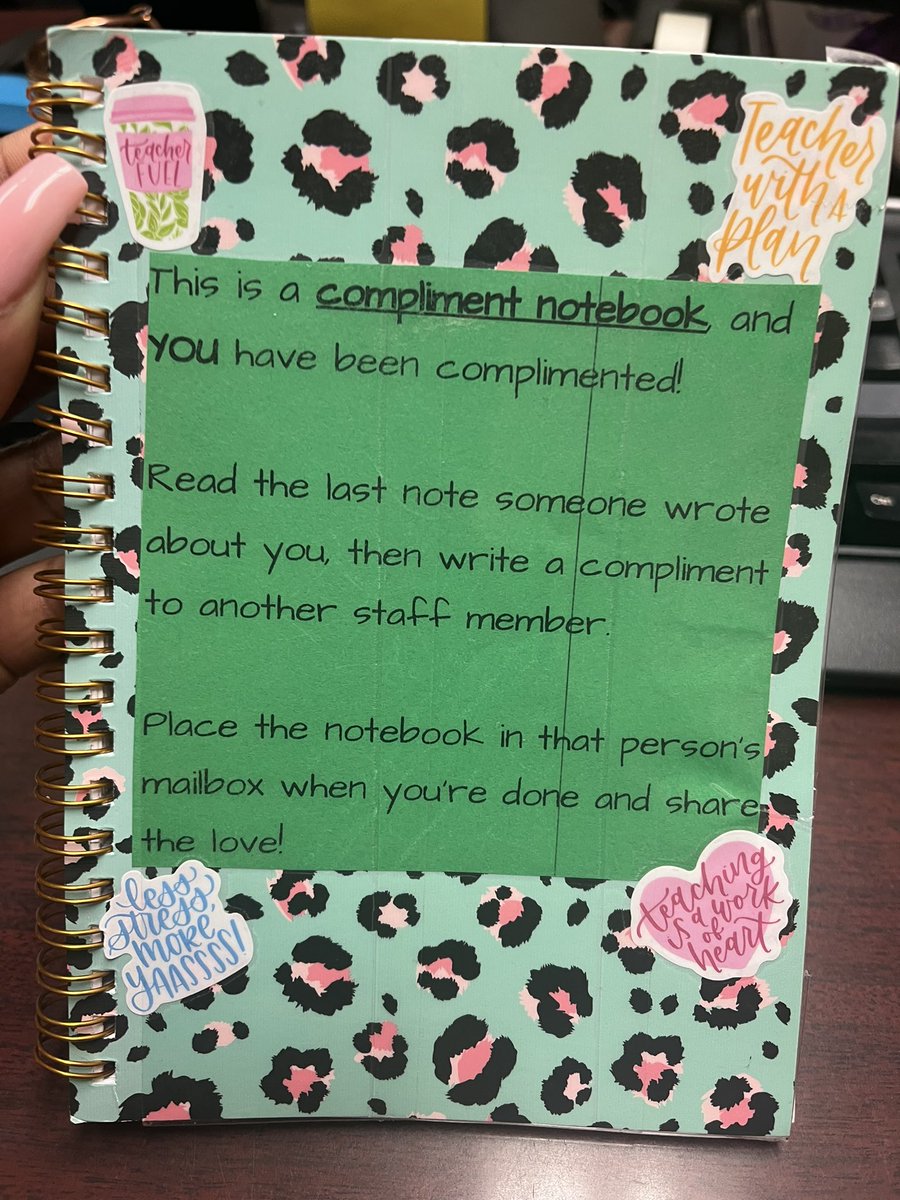 teacher
FUEL
Teacher
with A
plan
This is a compliment notebook, and
YOU have been complimented!
Read the last note someone wrote
about you, then write a compliment
to another staff member.
Place the notebook in that person's
mailbox when you're done and share
the love!
less
stress
more
YAASSSS!
teaching
is a work
of
heart